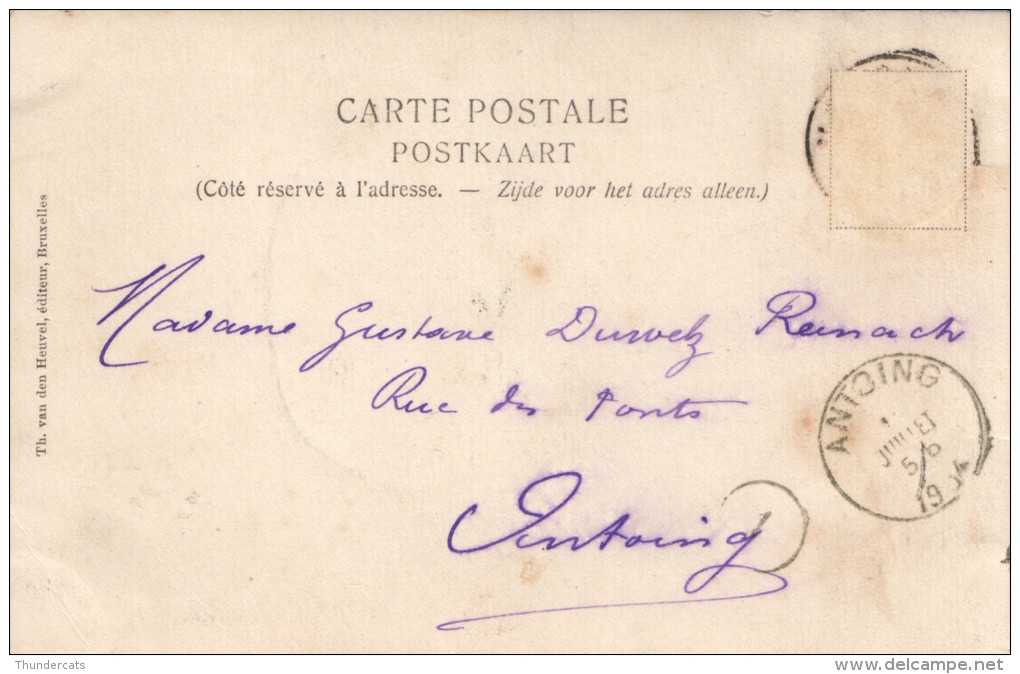 CARTE POSTALE
POSTKAART
(Côté réservé à l'adresse. — Zijde voor het adres alleen.)
Th. van den Heuvel, éditeur, Bruxelles
Madame Gustave Duwelz Reinach
Rue des Ponts
Antoing
ANTOING
1
JUILLET
5-6
1904
1
Thundercats
www.delcampe.net